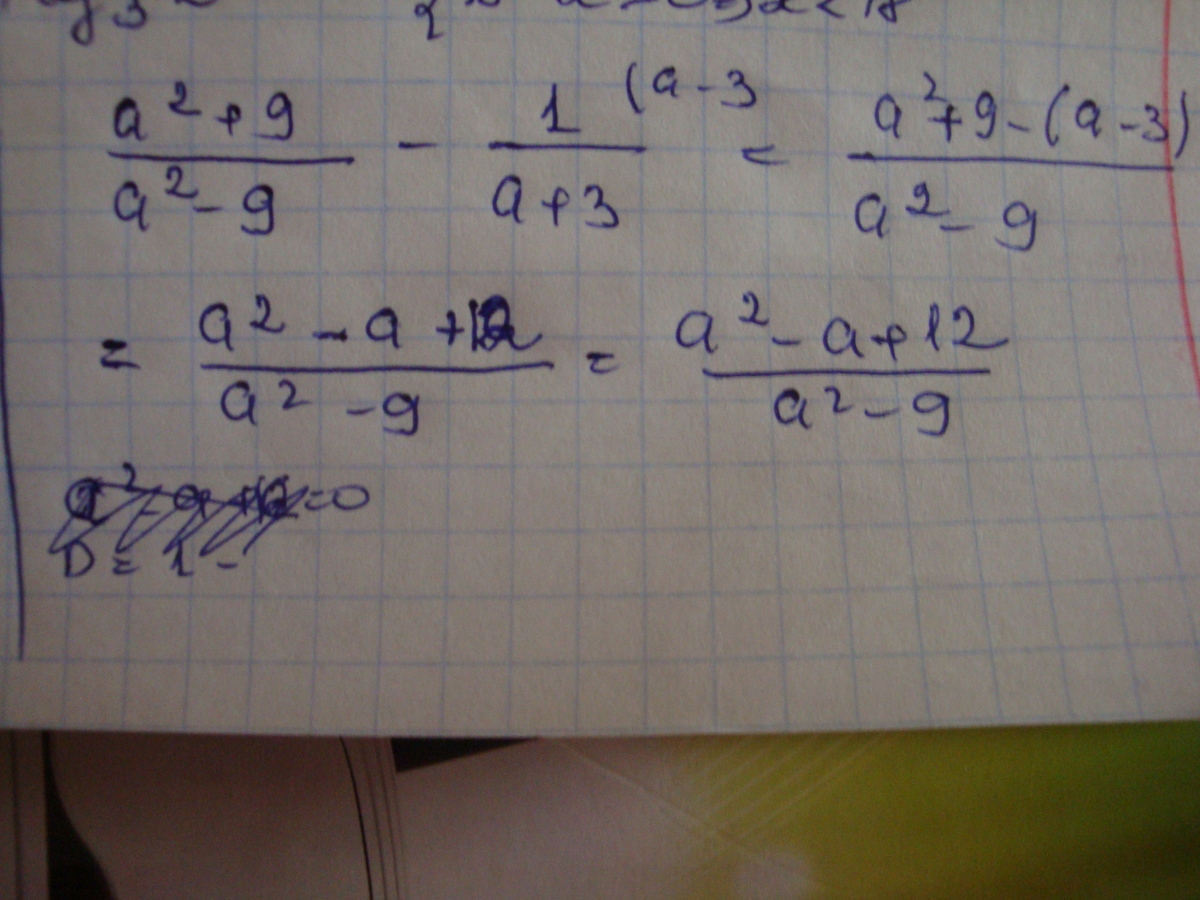 a² + 9 / a² - 9 - 1 (a - 3 / a + 3 = a² + 9 - (a - 3) / a² - 9
= a² - a + 12 / a² - 9 = a² - a + 12 / a² - 9
a² - a + 12 = 0
D = 1 -